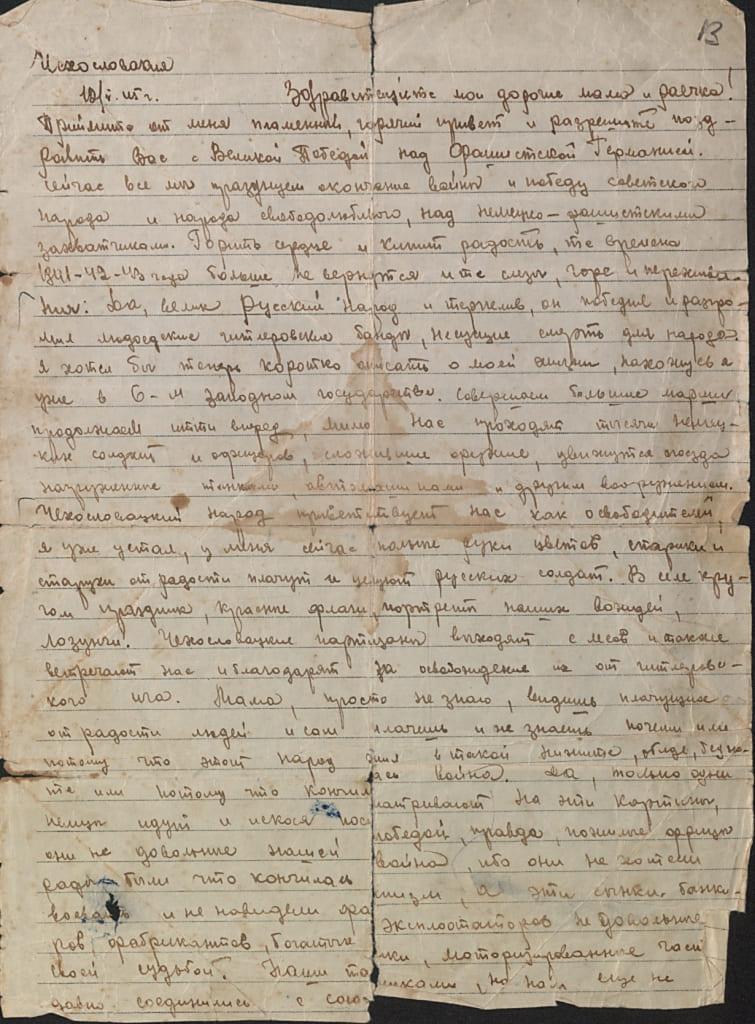 13
Чехословакия
10/V.45г. Здравствуйте мои дорогие мама и раечка!
Примите от меня пламенный, горячий привет и разрешите позд-
равить Вас с Великой Победой над Фашистской Германией.
Сейчас все мы празднуем окончание войны и победу советского
народа и народа свободолюбивого, над немецко-фашистскими
захватчиками. Горить сердце и кипит радость, те времена
1941-42-43 года больше не вернутся и те слезы, горе и пережива-
ния: Да, велик Русский народ и терпелив, он победил и разгро-
мил людоедские гитлеровские банды, несущие смерть для народа.
Я хотел бы теперь коротко описать о моей жизни, нахожусь я
уже в 6-м западном государстве. Совершаем большие марши,
продолжаем итти вперед, мимо нас проходят тысячи немец-
ких солдат и офицеров, сложившие оружие, движутся поезда
нагруженные танками, автомашинами и другим вооружением.
Чехословацкий народ приветствует нас как освободителей,
я уже устал, у меня сейчас полные руки цветов, старики и
старухи от радости плачут и целуют русских солдат. В селе кру-
гом праздник, красные флаги, портреты наших вождей,
лозунги. Чехословацкие партизаны выходят с лесов и также
встречают нас и благодарят за освобождение их от гитлеровс-
кого ига. Мама, просто не знаю, видишь плачущих
от радости людей и сам плачешь и не знаешь почему или
потому что этот народ жил в такой нищите, обиде,
те или потому что кончил ась война. Да, только одни
немцы идут и искося пос матривают на эти картины,
они не довольные нашей победой, правда, пожилые фрицы
рады были что кончилась война, ибо они не хотели
воевать и не навидели фа шизм, а эти сынки банки-
ров фабрикантов, богатые эксплоататоров не довольные
своей судьбой. Наши та нки, моторизированные части
давно соединились с союз никами, но нам еще не